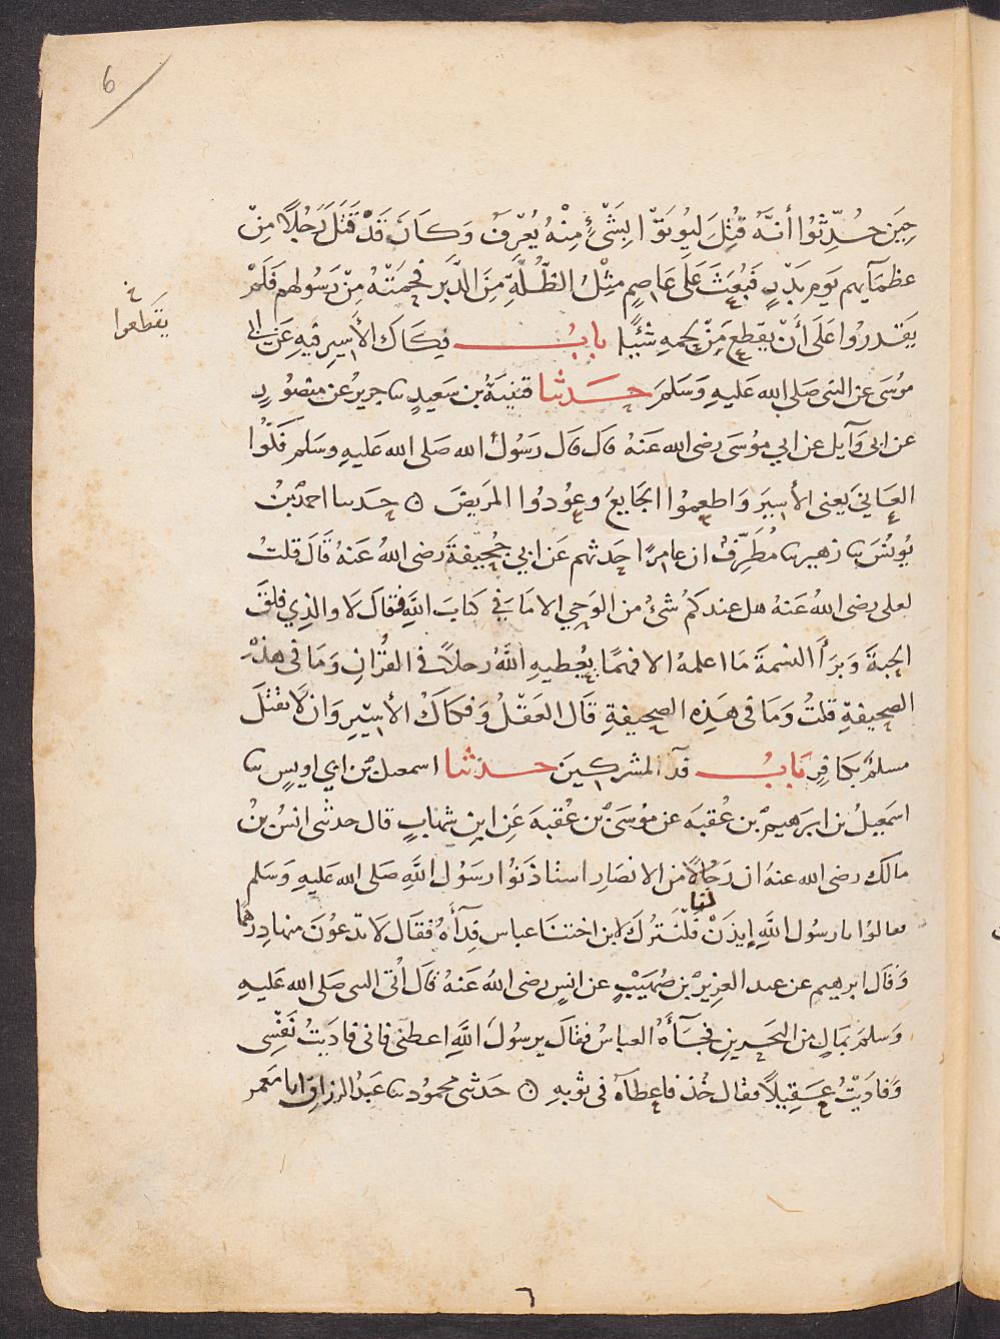 6
حِينَ حُدِّثُوا أَنَّهُ قُتِلَ لِيُوتَوْا بِشَىْءٍ مِنْهُ يُعْرَفُ وَكَانَ قَدْ قَتَلَ رَجُلًا مِنْ
عظمآيهم يَوم بَدْرٍ فَبُعِثَ عَلَى عَاصِمٍ مِثْلُ الظُّلَّةِ مِنَ الدَّبَرِ فَحَمَتْهُ مِنْ رَسُولهم فَلَمْ
يَقدرُوا عَلَى أَنْ يقطع مِنْ لحمِهِ شَيْئًا بابُ فِكَاك الأَسِيرِ فيهِ عَن ابى
يقطعوا خ
مُوسَى عن النبى صَلى الله عَليهِ وَسَلمَ حَدَثنا قتيبَةُ بن سَعيدٍ سا جريرٌ عن منصُورٍ
عن ابى وَآيل عن ابي مُوسَى رضى الله عَنهُ قال قال رَسُولُ الله صَلى الله عَليهِ وسَلم فكّوا
العَانيَ يَعنى الأسِيرَ وَاطعِمُوا الجَايعَ وعُودُوا المَريضَ ه حدسا احمدُ بنُ
يُونُسَ سا زهير سا مُطَرِّفٌ ان عامِرًا حدثهم عَن ابي جُحيفةَ رضى اللهُ عَنهُ قَالَ قلتُ
لعلى رضى اللهُ عَنهُ هل عندكم شئٌ من الوَحيِ الا مَا فِي كتابَ اللهِ فقالَ لَا والذِي فلقَ
الحبةَ وَبَرَأَ النسمةَ مَا اعلمهُ الا فهمًا يُعْطيهِ اللهُ رجلًا فى القُرْانِ وَمَا فى هذهْ
الصحيفةِ قلتُ وَمَا فى هَذِهِ الصحيفةِ قَال العَقْلُ وَفكاكُ الأسِيرِ وَان لَا يقتلَ
مسلمٌ بكافِرٍ بَابُ فدآ المشركينَ حَدثنا اسمعيل بن ابي اويسٍ سا
اسمعِيلُ بن ابرهيمَ بن عُقبَه عن مُوسَى بْن عُقبةَ عَنِ ابن شهابٍ قال حدثنى انسُ بنُ
مالك رضى الله عنهُ ان رَجالًا من الانصَارِ استاذنُوا رسُول اللهِ صَلى الله عَليهِ وَسَلم
فقالوُا يا رسُول اللهِ إيذَنْ لنا فَلْنَترُك لابن اختنَا عباس فِدَآءَهُ فقَال لا تدعُونَ منها درهما
وَقال ابرهيم عن عبد العزيزِ بْن صُهَيْبٍ عن انسٍ رضى اللهُ عَنهُ قَال أُتى النبى صَلى الله عَليهِ
وَسَلمَ بمَالٍ من البَحرينِ فجَآءَهُ العباسُ فقال يرسُولَ اللهِ اعطنى فانى فاديتُ نَفْسِى
وَفادَيْتُ عَقِيلًا فقال خُذ فاعطاهُ فى ثوبهِ ه حَدثنى محمُود سا عَبدُ الرزاقِ انا مَعمر
٦